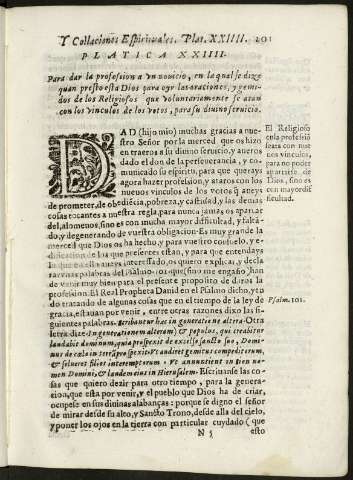 Y Collaciones Espirituales. Plat. XXIIII. 201
PLATICA XXIIII.
Para dar la profession a vn nouicio, en la qual se dize
quan presto esta Dios para oyr las oraciones, y gemi-
dos de los Religiosos que voluntariamente se atan
con los vinculos de los votos, para su diuino seruicio.
DAD (hijo mio) muchas gracias a nue-
stro Señor por la merced que os hizo
en traeros a su diuino seruicio, y aueros
dado el don de la perseuerancia, y co-
municado su espiritu, para que querays
agora hazer profession, y ataros con los
nueuos vinculos de los votos q̃ aueys
de prometer, de obediẽcia, pobreza, y castidad, y las demas
cosas tocantes a nuestra regla, para nunca jamas os apartar
del, alomenos, sino es con mucha dificultad, y faltã-
do, y degenerando de vuestra obligacion. Es muy grande la
merced que Dios os ha hecho, y para vuestro consuelo, y e-
dificacion de los que presentes estan, y para que entendays
lo que en ella aueys interessado, os quiero explicar, y decla
rar vnas palabras del Psalmo. 101. que (sino me engaño) han
de venir muy bien para el presente proposito de daros la
profession. El Real Propheta Dauid en el Psalmo dicho, y to
do tratando de algunas cosas que en el tiempo de la ley de
gracia, estauan por venir, entre otras razones dixo las si-
guientes palabras. Scribantur hæc in generatione altera. Otra
letra dize (In generationem alteram) & populus, qui creabitur
laudabit dominum, quia prospexit de excelso sancto suo, Domi-
nus de cœlo in terrã prospexit. Vt audiret gemitus compeditorum,
& solueret filios interemptorum. Vt annuntient in Sion no-
men Domini, & laudem eius in Hierusalem. Escriuanse las co-
sas que quiero dezir para otro tiempo, para la genera-
cion, que esta por venir, y el pueblo que Dios ha de criar,
ocupese en sus diuinas alabanças: porque se digno el señor
de mirar desde su alto, y Sancto Trono, desde alla del cielo,
y poner los ojos en la tierra con particular cuydado (que
N 5 esto
El Religioso
en la professiõ
se ata con nue
uos vinculos,
para no poder
apartarse de
Dios, sino es
con mayor dif
ficultad.
Psalm. 101.